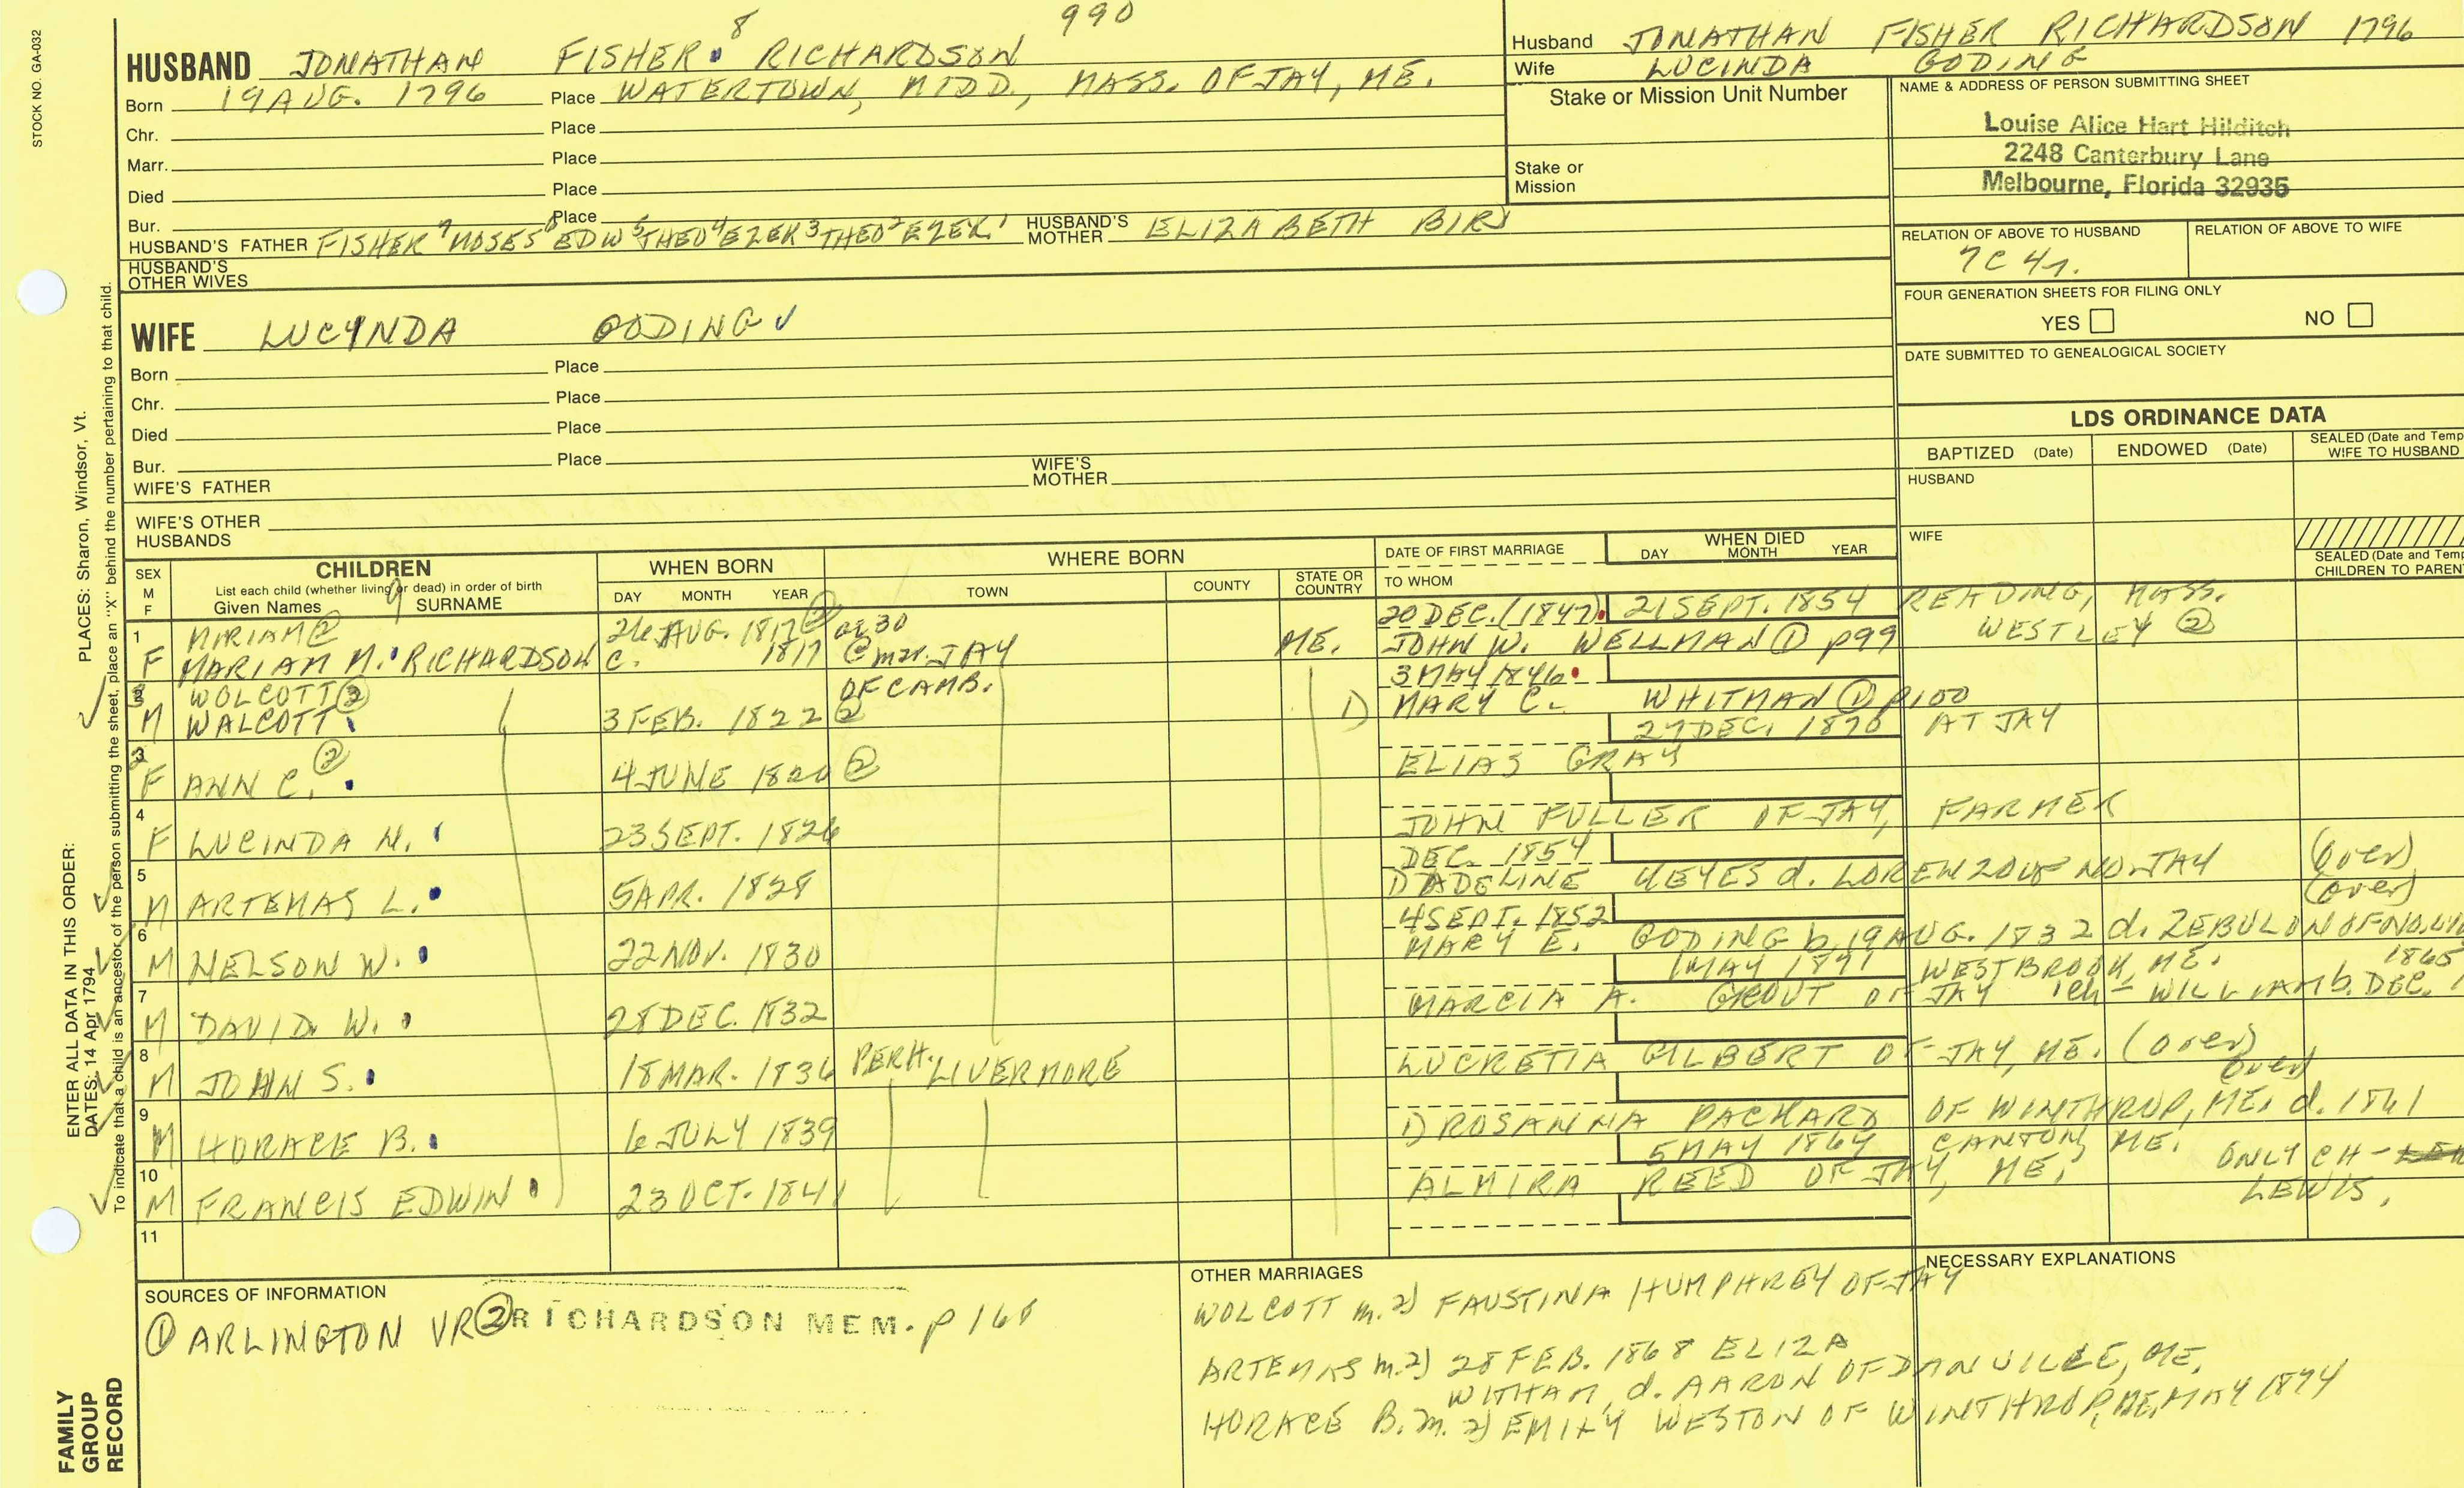 STOCK NO. GA-032
990
HUSBAND JONATHAN FISHER 8 RICHARDSON
Born 19 AUG. 1796 Place WATERTOWN, MIDD., MASS. OF JAY, ME.
Chr. Place
Marr. Place
Died Place
Bur. Place
HUSBAND'S FATHER FISHER 7 MOSES 6 EDW 5 THEO 4 EZEK 3 THEO 2 EZEK. 1 HUSBAND'S MOTHER ELIZABETH BIRD
HUSBAND'S OTHER WIVES
WIFE LUCYNDA GODING
Born Place
Chr. Place
Died Place
Bur. Place
WIFE'S FATHER WIFE'S MOTHER
WIFE'S OTHER HUSBANDS
Husband JONATHAN FISHER RICHARDSON 1796
Wife LUCINDA GODING
Stake or Mission Unit Number
Stake or Mission
NAME & ADDRESS OF PERSON SUBMITTING SHEET
Louise Alice Hart Hilditch
2248 Canterbury Lane
Melbourne, Florida 32935
RELATION OF ABOVE TO HUSBAND RELATION OF ABOVE TO WIFE
7C 4r.
FOUR GENERATION SHEETS FOR FILING ONLY
YES NO
DATE SUBMITTED TO GENEALOGICAL SOCIETY
LDS ORDINANCE DATA
BAPTIZED (Date) ENDOWED (Date) SEALED (Date and Temp WIFE TO HUSBAND
HUSBAND
WIFE
SEALED (Date and Temp CHILDREN TO PAREN
SEX M F
CHILDREN
List each child (whether living or dead) in order of birth
Given Names 9 SURNAME
WHEN BORN
DAY MONTH YEAR
WHERE BORN
TOWN COUNTY STATE OR COUNTRY
DATE OF FIRST MARRIAGE
TO WHOM
WHEN DIED
DAY MONTH YEAR
1 MIRIAM ② 26 AUG. 1817 ② ae 30 20 DEC. (1847) 21 SEPT. 1854 READING, MASS.
F MARIAM M. RICHARDSON C. 1817 @ mar. JAY ME. JOHN W. WELLMAN ① p99 WESTLEY ②
WOLCOTT ② OF CAMB. 3 MAY 1846
M WALCOTT 3 FEB. 1822 ② 1) MARY C. WHITMAN ① p100
27 DEC. 1870 AT JAY
F ANN C. ② 4 JUNE 1820 ② ELIAS GRAY
4 F LUCINDA N. 23 SEPT. 1826 JOHN FULLER OF JAY, FARMER
DEC. 1854 (over)
5 M ARTEMAS L. 5 APR. 1828 1) ADELINE KEYES d. LORENZO OF NO. JAY (over)
4 SEPT. 1852
6 M NELSON W. 22 NOV. 1830 MARY E. GODING b. 19 AUG. 1832 d. ZEBULON OF NO.
1 MAY 1871 WESTBROOK, ME. 1865
7 M DAVID W. 28 DEC. 1832 MARCIA A. GROUT OF JAY 1 ch - WILLIAM b. DEC.
8 M JOHN S. 18 MAR. 1836 PERH. LIVERMORE LUCRETIA GILBERT OF JAY, ME. (over)
over)
9 M HORACE B. 6 JULY 1839 1) ROSANNA PACKARD OF WINTHROP, ME. d. 1861
5 MAY 1864 CANTON, ME. ONLY CH -
10 M FRANCIS EDWIN 23 OCT. 1841 ALMIRA REED OF JAY, ME. LEWIS.
11
SOURCES OF INFORMATION
① ARLINGTON VR ② RICHARDSON MEM. p 168
OTHER MARRIAGES
WOLCOTT m. 2) FAUSTINA HUMPHREY OF JAY
ARTEMAS m. 2) 28 FEB. 1868 ELIZA
WITHAM, d. AARON OF DANVILLE, ME.
HORACE B. m. 2) EMILY WESTON OF WINTHROP, ME, MAY 1874
NECESSARY EXPLANATIONS
PLACES: Sharon, Windsor, Vt.
ENTER ALL DATA IN THIS ORDER:
DATES: 14 Apr 1794
To indicate that a child is an ancestor of the person submitting the sheet, place an "X" behind the number pertaining to that child.
FAMILY GROUP RECORD